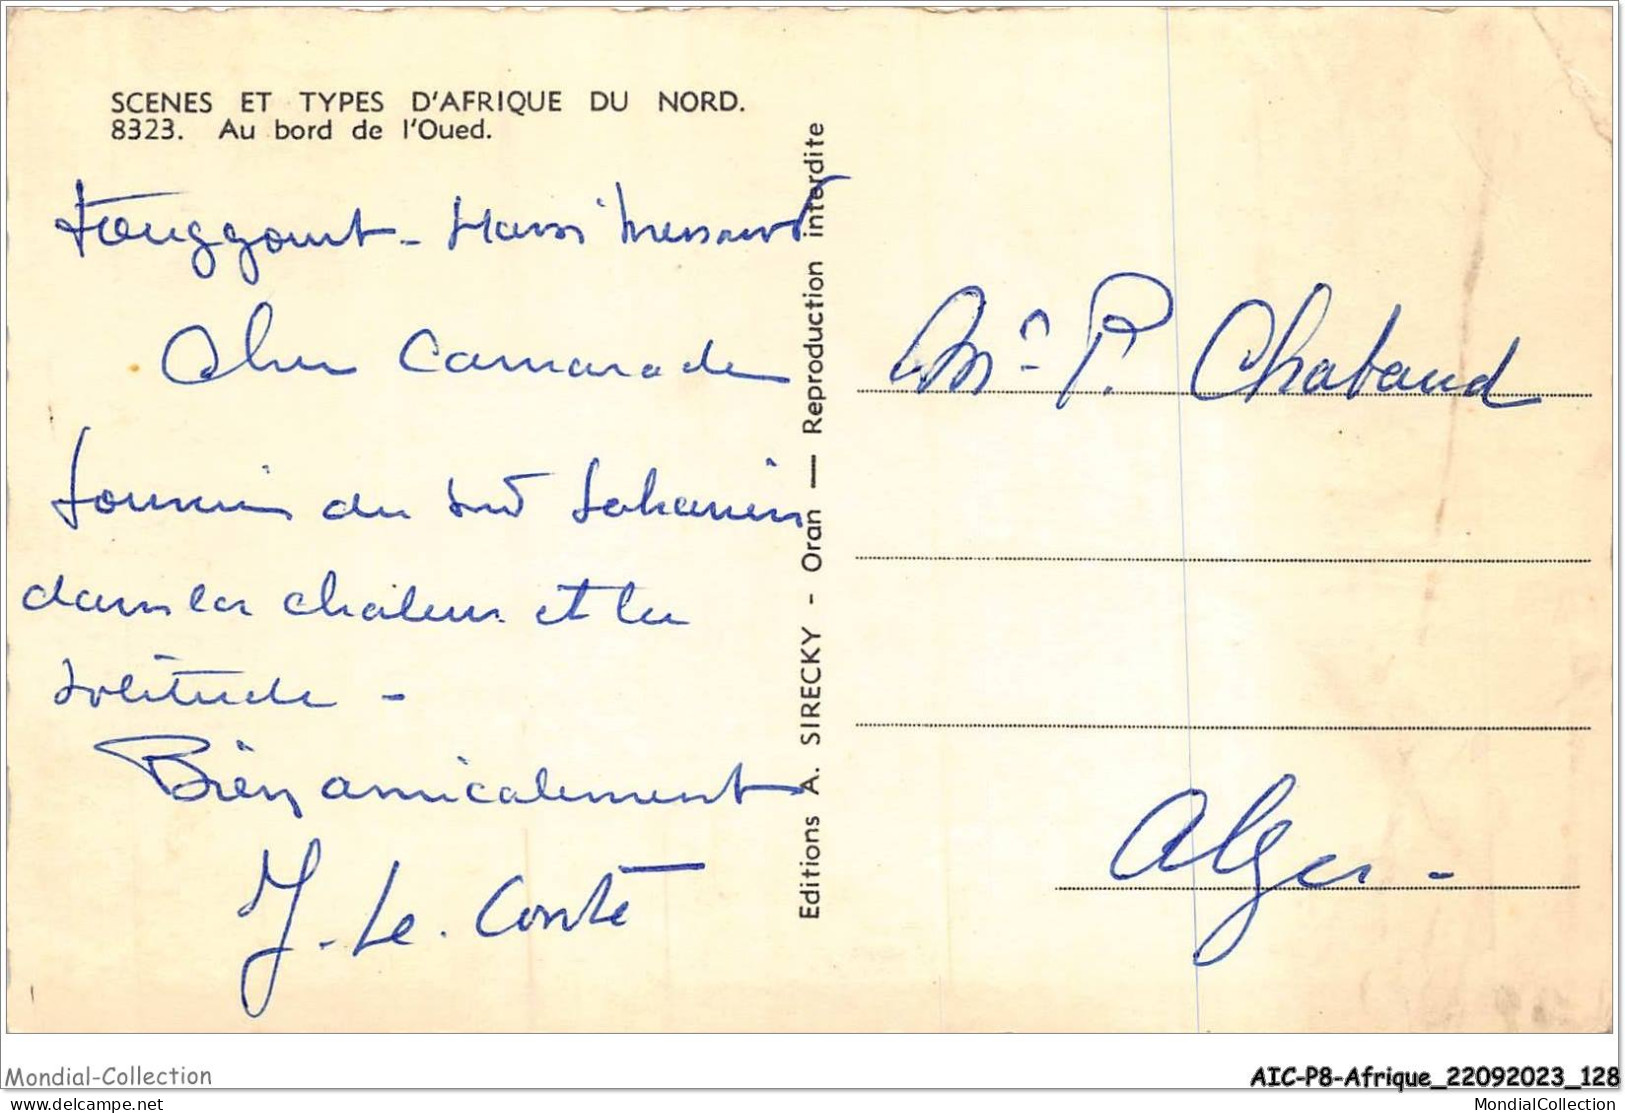 SCENES ET TYPES D'AFRIQUE DU NORD.
8323. Au bord de l'Oued.
Touggourt - Hassi Messaoud
Cher Camarade
Souvenir du Sud Saharien
dans la chaleur et la
solitude -
Bien amicalement
J. Le. Conte
Editions A. SIRECKY - Oran — Reproduction interdite
Mr - P. Chabaud
Alger -
Mondial-Collection
AIC-P8-Afrique_22092023_128
delcampe.net
MondialCollection